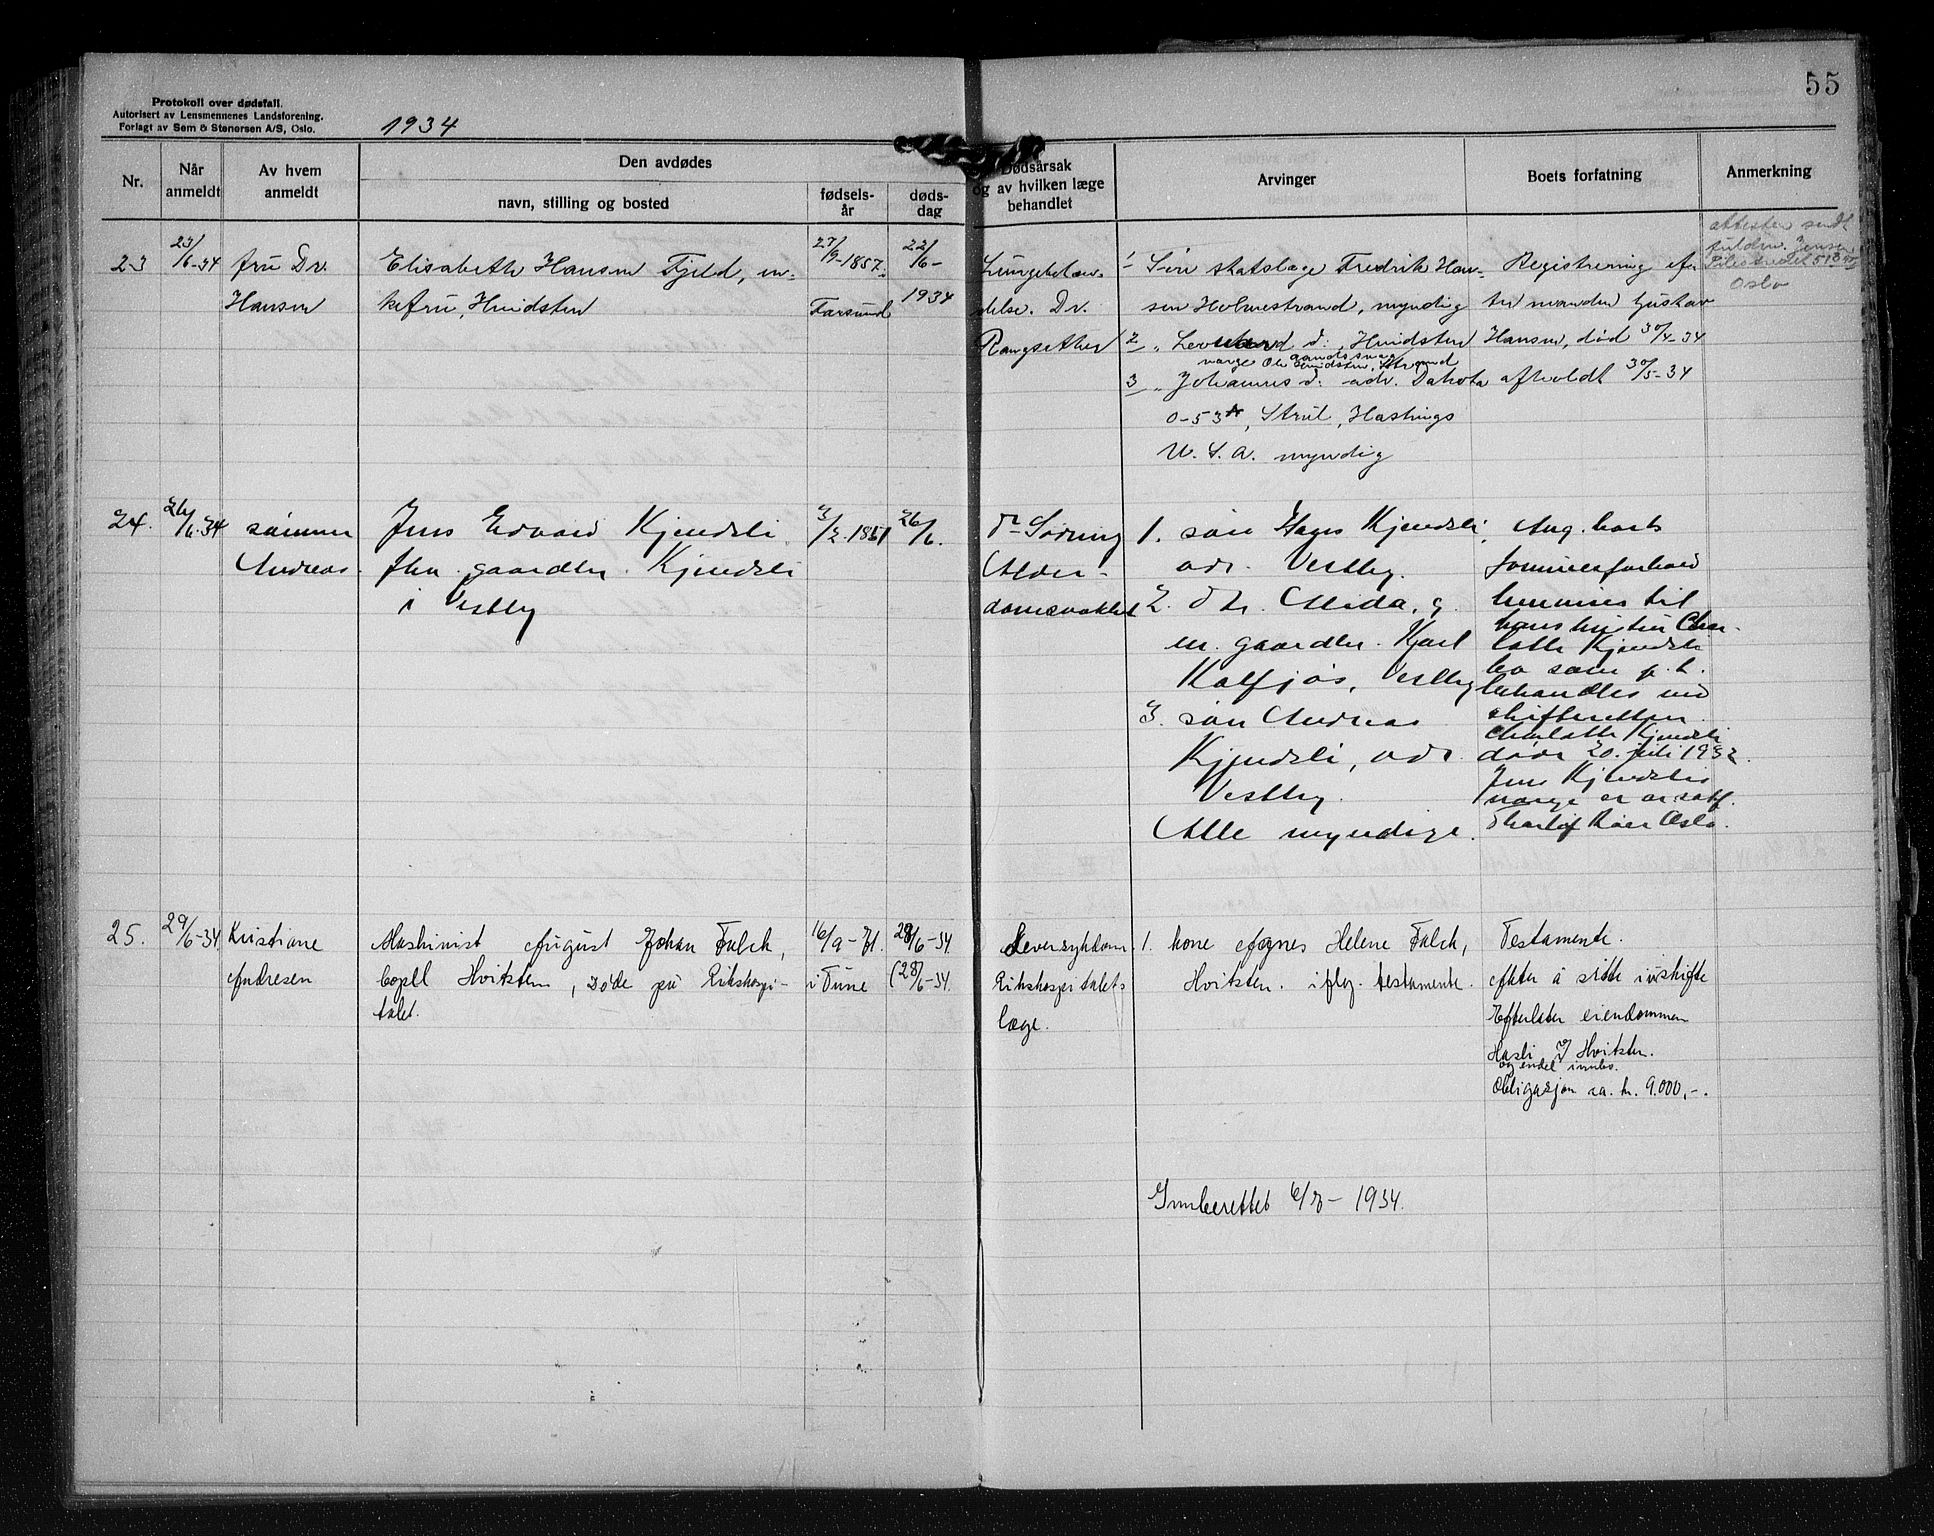 55
Protokoll over dødsfall.
Autorisert av Lensmennenes Landsforening.
Forlagt av Sem & Stenersen A/S, Oslo.
1934
Nr.
Når anmeldt
Av hvem anmeldt
Den avdødes
navn, stilling og bosted
fødsels-år
døds-dag
Dødsårsak
og av hvilken læge
behandlet
Arvinger
Boets forfatning
Anmerkning
23
23/6-34
fru Dr.
Hansen
Elisabeth Hansen Fjeld, en-
kefru, Hvidsten
27/9-1857
Farsund
22/6-
1934
Lungebeten-
delse. Dr.
1 Søn statslæge Fredrik Han-
sen Holmestrand, myndig
2 " Leonard d: Hvidsten
3 " Johannes d: adr. Dakota
0-53, Strut, Hastings
U.S.A. myndig
Registrering ef-
ter manden Gustav
Hansen, død 30/4-34
afholdt 30/5-34
attester sendt
Oslo
24.
26/6-34
sønnen
Andreas.
Jens Edvard Kjendsli
fhv. gaardbr. Kjendsli
i Vestby
3/2.1851
26/6.
dr Sørung
Alder-
domssvakhet
1. søn Hages Kjendsli,
adr. Vestby.
2. dtr. Alida, g.
m. gaardbr. Karl
Kolfjøs, Vestby
3. søn Andreas
Kjendsli, adr.
Vestby.
Alle myndige.
Ang. boets
formuesforhold
henvises til
hans hustru Char-
lotte Kjendsli
bo som p.t.
behandles ved
skifteretten.
Charlotte Kjendsli
døde 20. juli 1932.
Jens Kjendslis
verge er o.r.sakf.
Thorlof Roer Oslo.
25.
29/6-34
Kristiane
Andresen
Maskinist August Johan Falch,
Hvitsten, døde på Rikshospi-
talet.
16/9-71.
i Tune
28/6-34.
(28/6-34.
Leversykdom
Rikshospitalets
læge.
1. kone Agnes Helene Falch,
Hvitsten. iflg. testamente.
Testamente.
akter å sitte i uskifte
Efterlater eiendommen
Hasli i Hvitsten.
og endel innbo.
Obligasjon ca. kr. 9.000,-.
Innberettet 6/7- 1934.